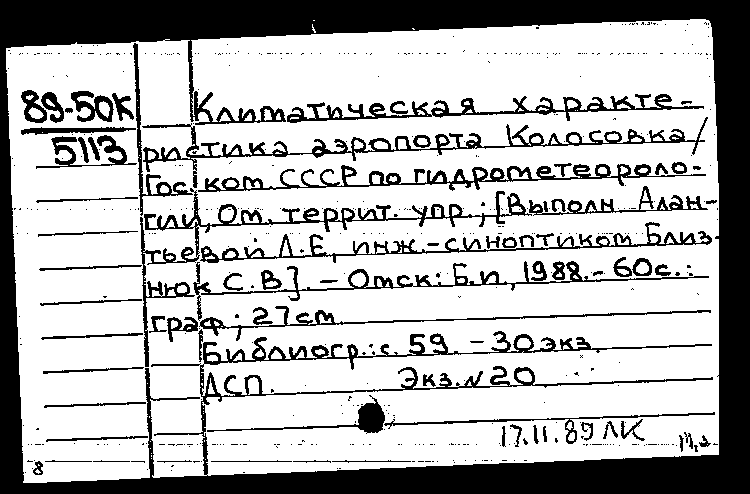 89-50К
5113
Климатическая характе-
ристика аэропорта Колосовка/
Гос. ком. СССР по гидрометеороло-
гии, Ом. террит. упр.; [Выполн Алан-
тьевой Л.Е, инж.-синоптиком Близ-
нюк С.В]. - Омск: Б.и, 1988. - 60с.:
граф; 27см
Библиогр.: с. 59. - 30 экз.
ДСП. Экз. N 20
17.11.89 ЛК
8